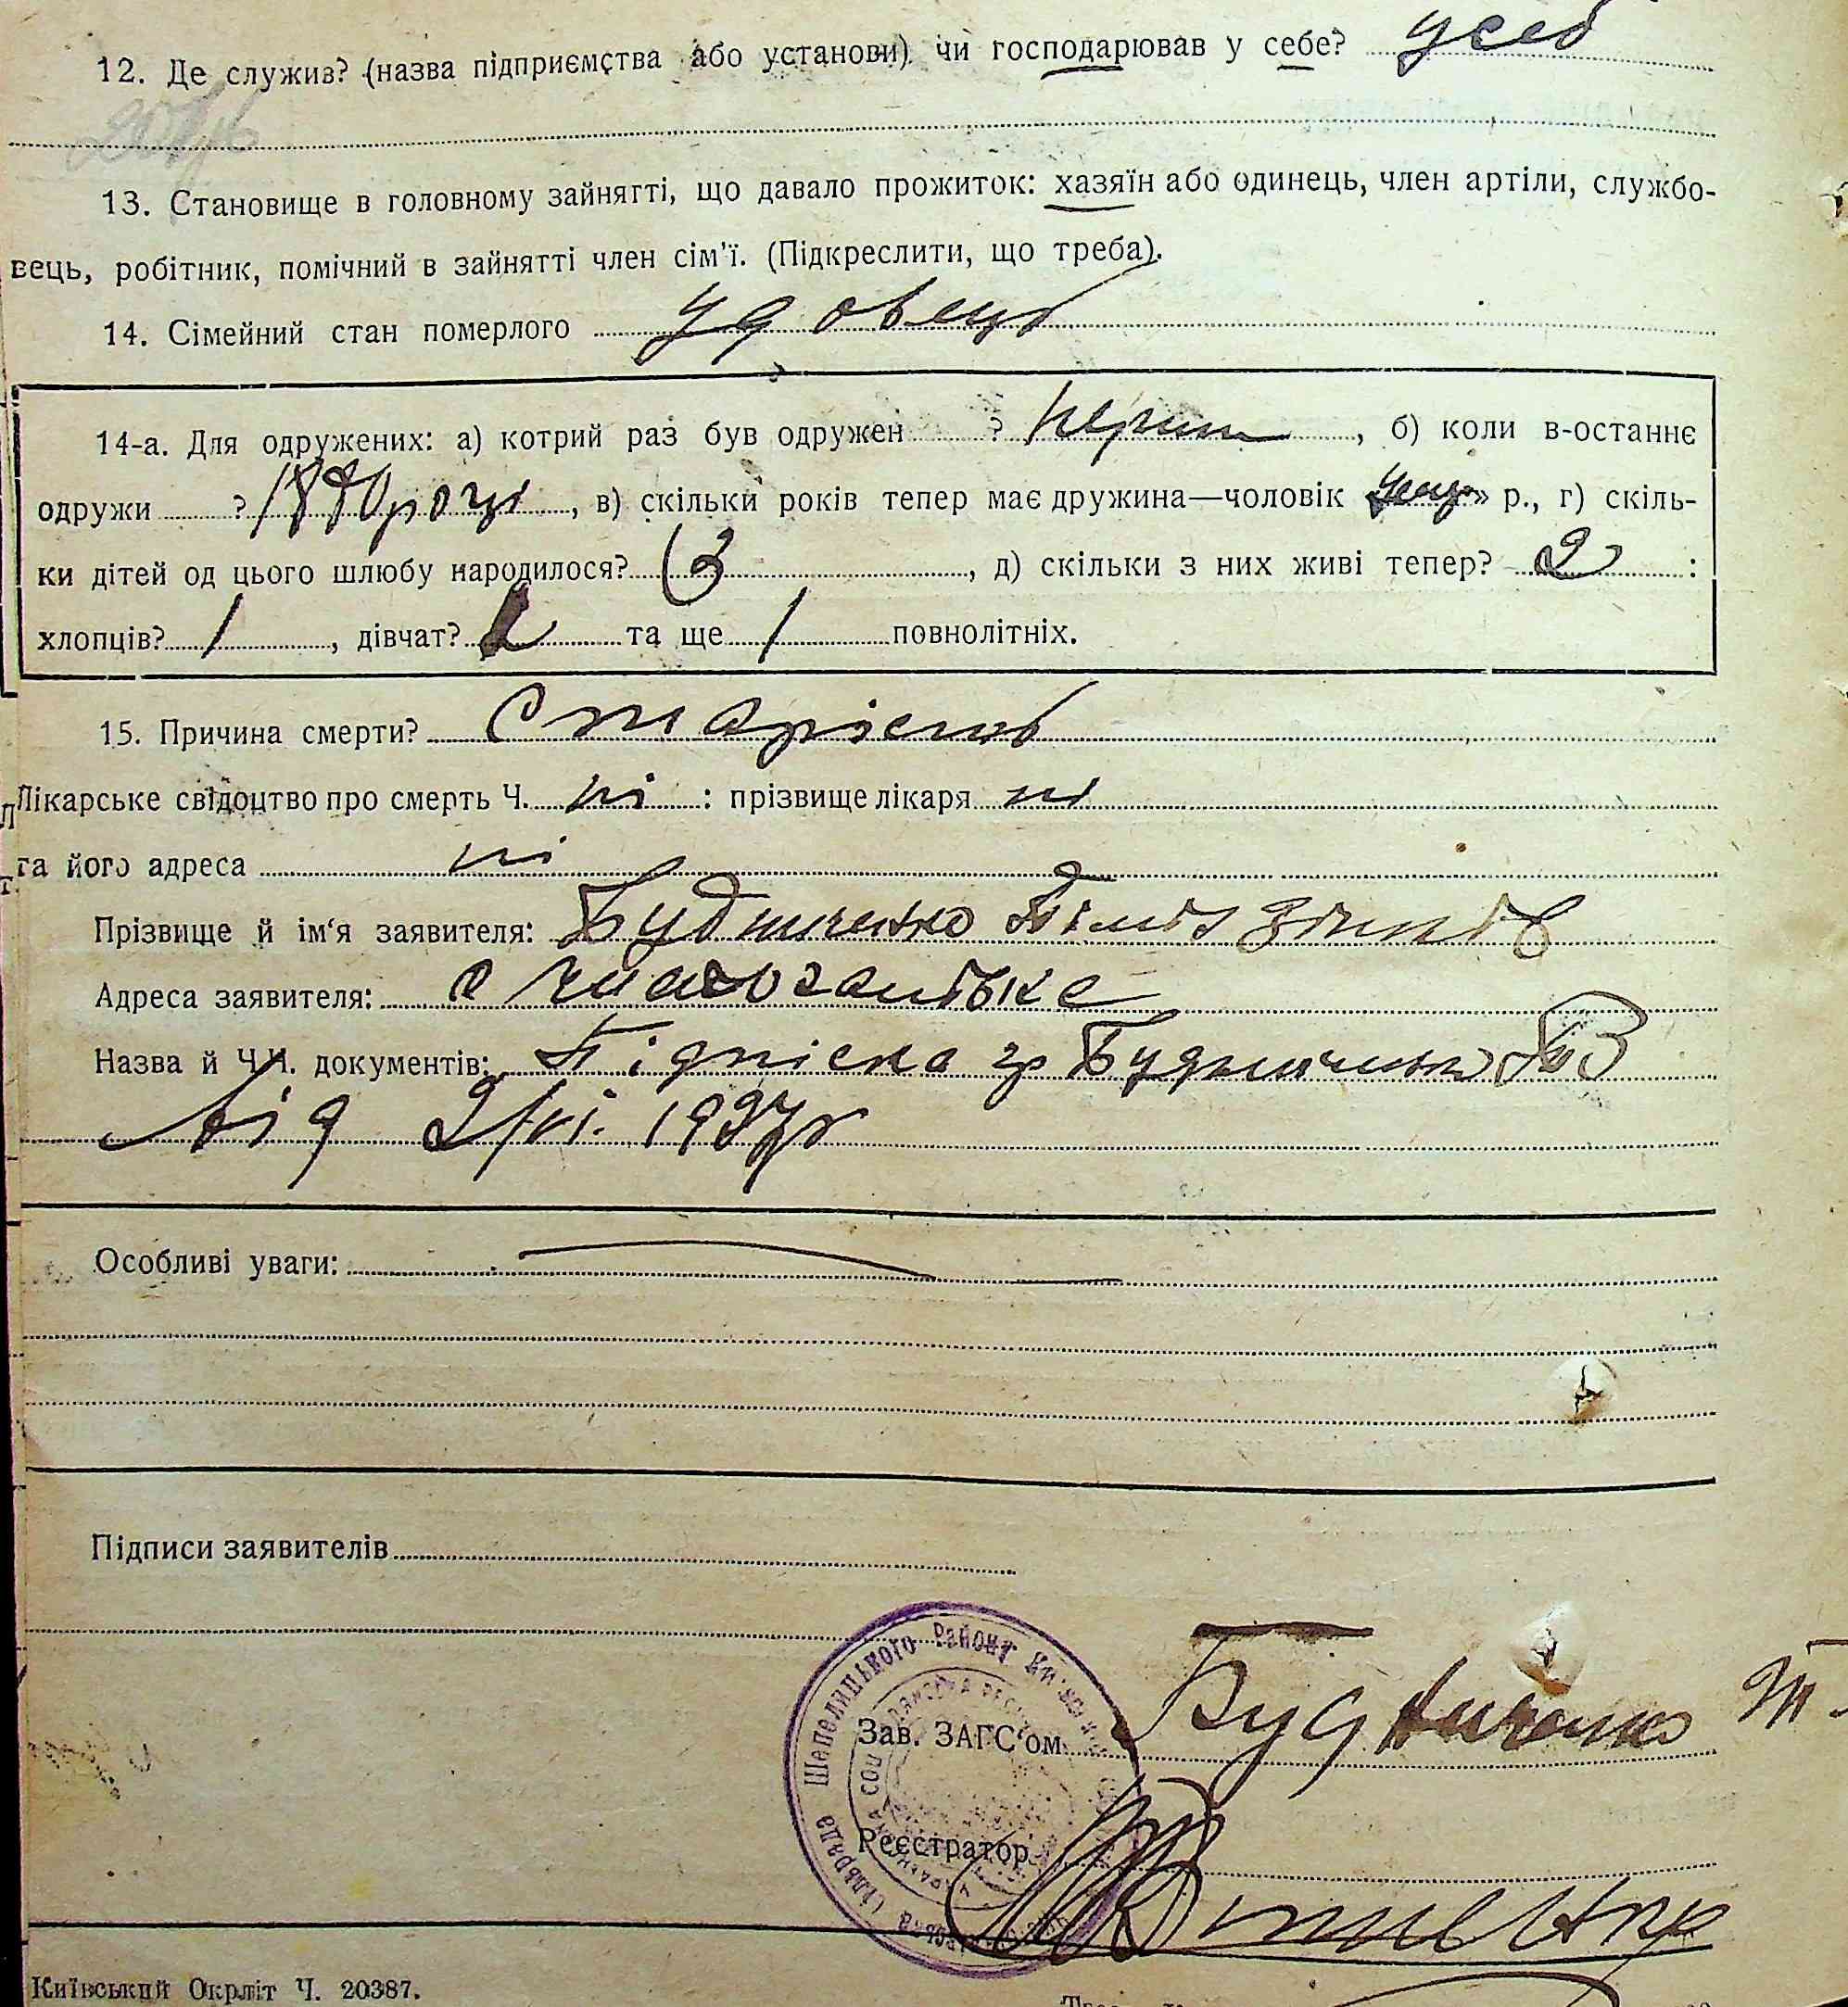 12. Де служив? (назва підприємства або установи) чи господарював у себе? у себ
13. Становище в головному зайнятті, що давало прожиток: хазяїн або одинець, член артіли, службо-
вець, робітник, помічний в зайнятті член сім'ї. (Підкреслити, що треба).
14. Сімейний стан померлого удовець
14-а. Для одружених: а) котрий раз був одружен ? перши , б) коли в-останнє
одружи ? році , в) скільки років тепер має дружина—чоловік » р., г) скіль-
ки дітей од цього шлюбу народилося? 3 , д) скільки з них живі тепер? 2 :
хлопців? 1 , дівчат? та ще 1 повнолітніх.
15. Причина смерти? Старість
Лікарське свідоцтво про смерть Ч. ні : прізвище лікаря ні
та його адреса ні
Прізвище й ім'я заявителя: Будниченко
Адреса заявителя: с
Назва й Ч.Ч. документів: Підпіска гр Будниченко
Від 2/VI. 1927р
Особливі уваги:
Підписи заявителів
Зав. ЗАГС'ом Будниченко Т.
Реєстратор
Сільрада Шепелицького Району
Київський Окрліт Ч. 20387.